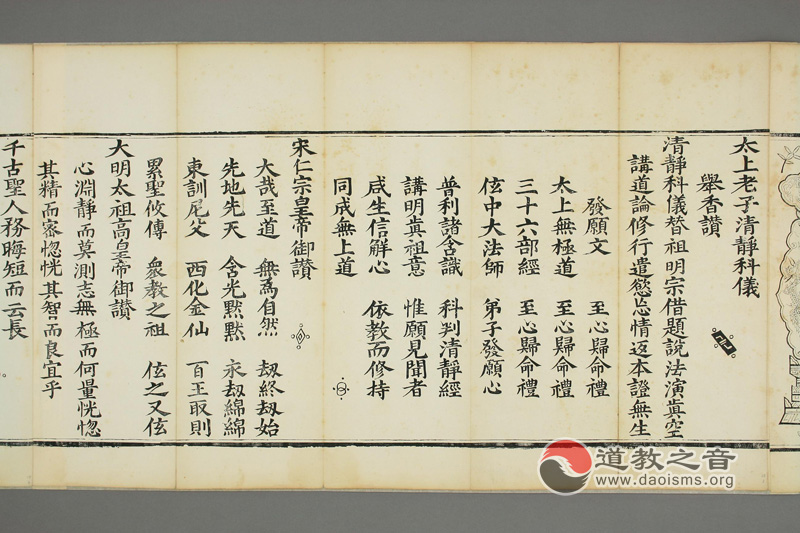 太上老子清靜科儀
舉香讚
清靜科儀替祖明宗借題說法演眞空
講道論修行遣慾忘情返本證無生
發願文 至心歸命禮
太上無極道 至心歸命禮
三十六部經 至心歸命禮
伭中大法師 弟子發願心
普利諸含識 科判清靜經
講明眞祖意 惟願見聞者
咸生信解心 依教而修持
同成無上道
宋仁宗皇帝御讚
大哉至道 無爲自然 劫終劫始
先地先天 含光默默 永劫綿綿
東訓尼父 西化金仙 百王取則
累聖攸傳 衆教之祖 伭之又伭
大明太祖高皇帝御讚
心淵靜而莫測志無極而何量恍惚
其精而密惚恍其智而良宜乎
千古聖人務晦短而云長
道教之音
www.daoisms.org